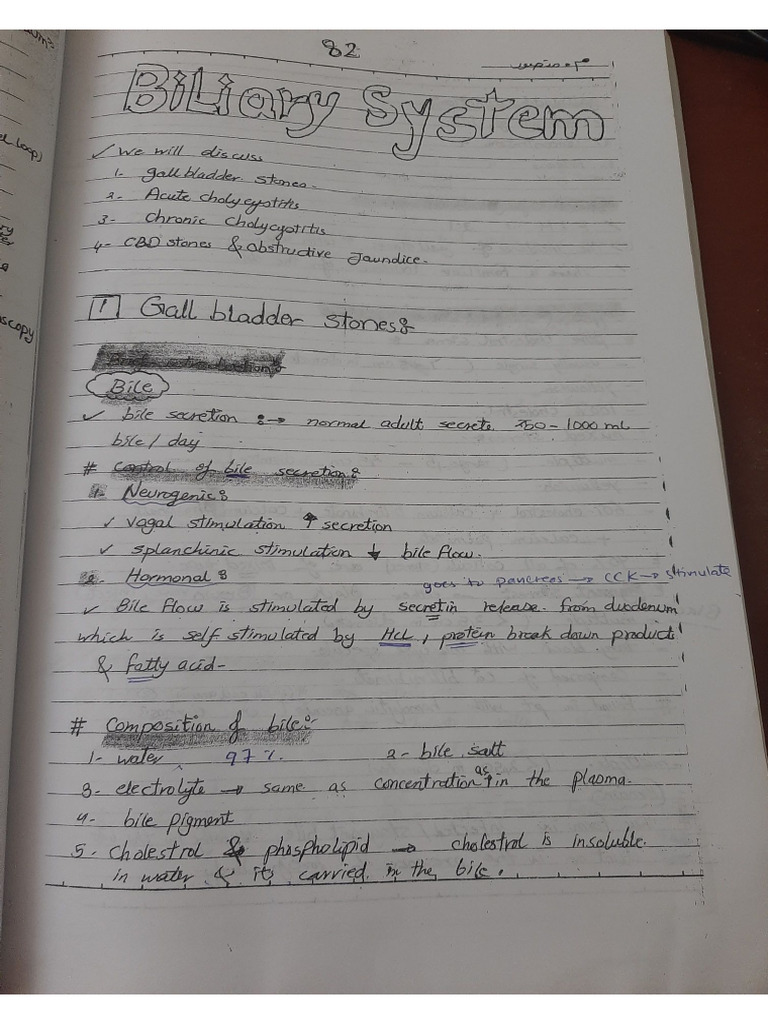 82
BiLiary System
✓ We will discuss
1- gall bladder stones.
2- Acute cholycyotitis
3- chronic cholycyotitis
4- CBD stones & obstructive Jaundice.
1 Gall bladder stones:
Brief introduction:
Bile
✓ bile secretion :→ normal adult secrets 250 - 1000 mL
bile / day
# Control of bile secretion:
1- Neurogenic:
✓ vagal stimulation ↑ secretion
✓ splanchinic stimulation ↓ bile flow.
2- Hormonal:
goes to pancreas → CCK → stimulate
✓ Bile flow is stimulated by secretin release from duodenum
which is self stimulated by HCL, protein break down product
& fatty acid-
# Composition of bile:-
1- water 97 %. 2- bile salt
3- electrolyte → same as concentration as in the plasma.
4- bile pigment
5- cholestrol & phospholipid → cholestrol is insoluble
in water & it's carried in the bile.